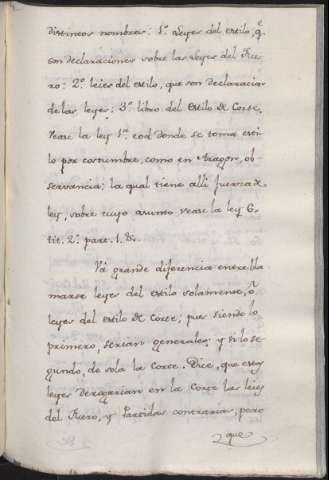 distintos nombres: 1.º Leyes del estilo, q.e
son declaraciones sobre las Leyes del Fue-
ro: 2.º leies del estilo, que son declaracion
de las leyes: 3.º libro del Estilo de Corte.
Vease la ley 1.ª cod. donde se toma esti-
lo por costumbre, como en Aragon, ob-
servancia; la qual tiene alli fuerza de
ley, sobre cuyo asunto vease la ley 6.
tit. 2.º part. 1.
Vá grande diferencia entre lla-
marse leyes del estilo solamente, ó
leyes del estilo de Corte; pues siendo lo
primero, serian generales; y si lo se-
gundo, de sola la Corte. Dice, que estas
leyes derogarian en la Corte las leies
del Fuero, y Partidas contrarias, pero
que